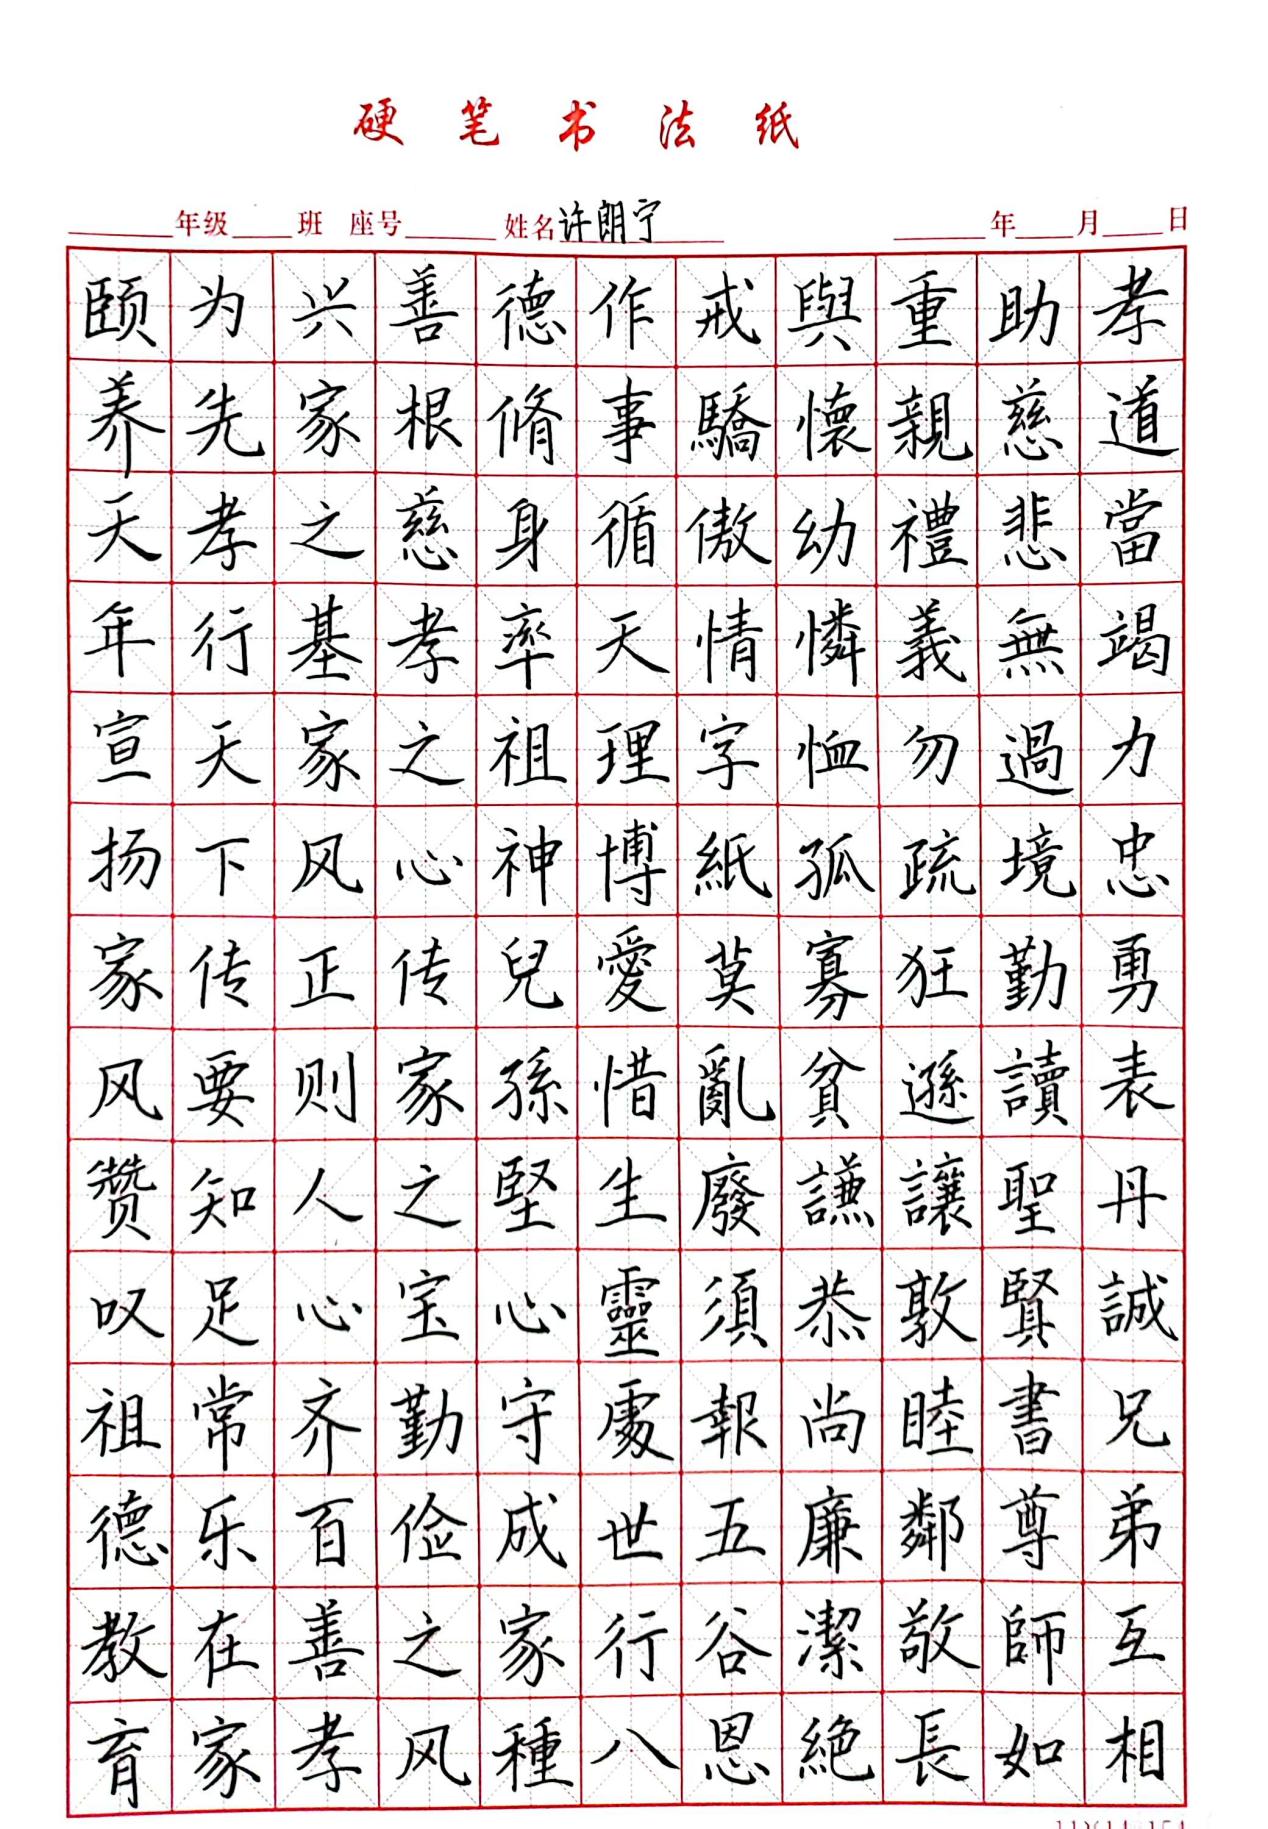 硬笔书法纸
年级 班 座号 姓名许朗宁 年 月 日
孝道當竭力忠勇表丹誠兄弟互相
助慈悲無過境勤讀聖賢書尊師如
重親禮義勿疏狂遜讓敦睦鄰敬長
與懷幼憐恤孤寡貧謙恭尚廉潔絕
戒驕傲情字紙莫亂廢須報五谷恩
作事循天理博愛惜生靈處世行八
德脩身率祖神兒孫堅心守成家種
善根慈孝之心传家之宝勤俭之风
兴家之基家风正则人心齐百善孝
为先孝行天下传要知足常乐在家
颐养天年宣扬家风赞叹祖德教育